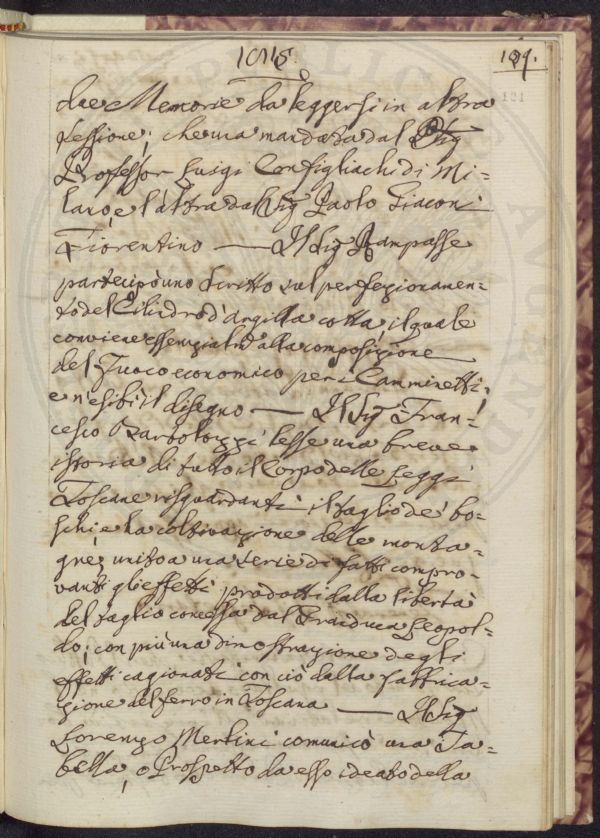 1815.
127.
due Memorie da leggersi in altra
sessione; che una mandata dal Sig
Professor Luigi Configliachi di Mi=
lano, e l'altra dal Sig Paolo Giaconi
Fiorentino — Il Sig Rampasse
partecipò uno scritto sul perfezionamen=
to del Cilindro d'argilla cotta, il quale
conviene essenzialm alla composizione
del Fuoco economico per i Camminetti,
e n'esibì il disegno — Il Sig Fran=
cesco Bartolozzi lesse una breve
istoria di tutto il Corpo delle Leggi
Toscane risguardanti il taglio de' bo=
schi, e la coltivazione delle monta=
gne, unito a una serie di fatti compro=
vanti gli effetti prodotti dalla libertà
del taglio concessa dal Granduca Leopol=
do; con più una dimostrazione degli
effetti cagionati con ciò dalla fabbrica=
zione del ferro in Toscana — Il Sig
Lorenzo Merlini comunicò una Ta=
bella, o Prospetto da esso ideato della